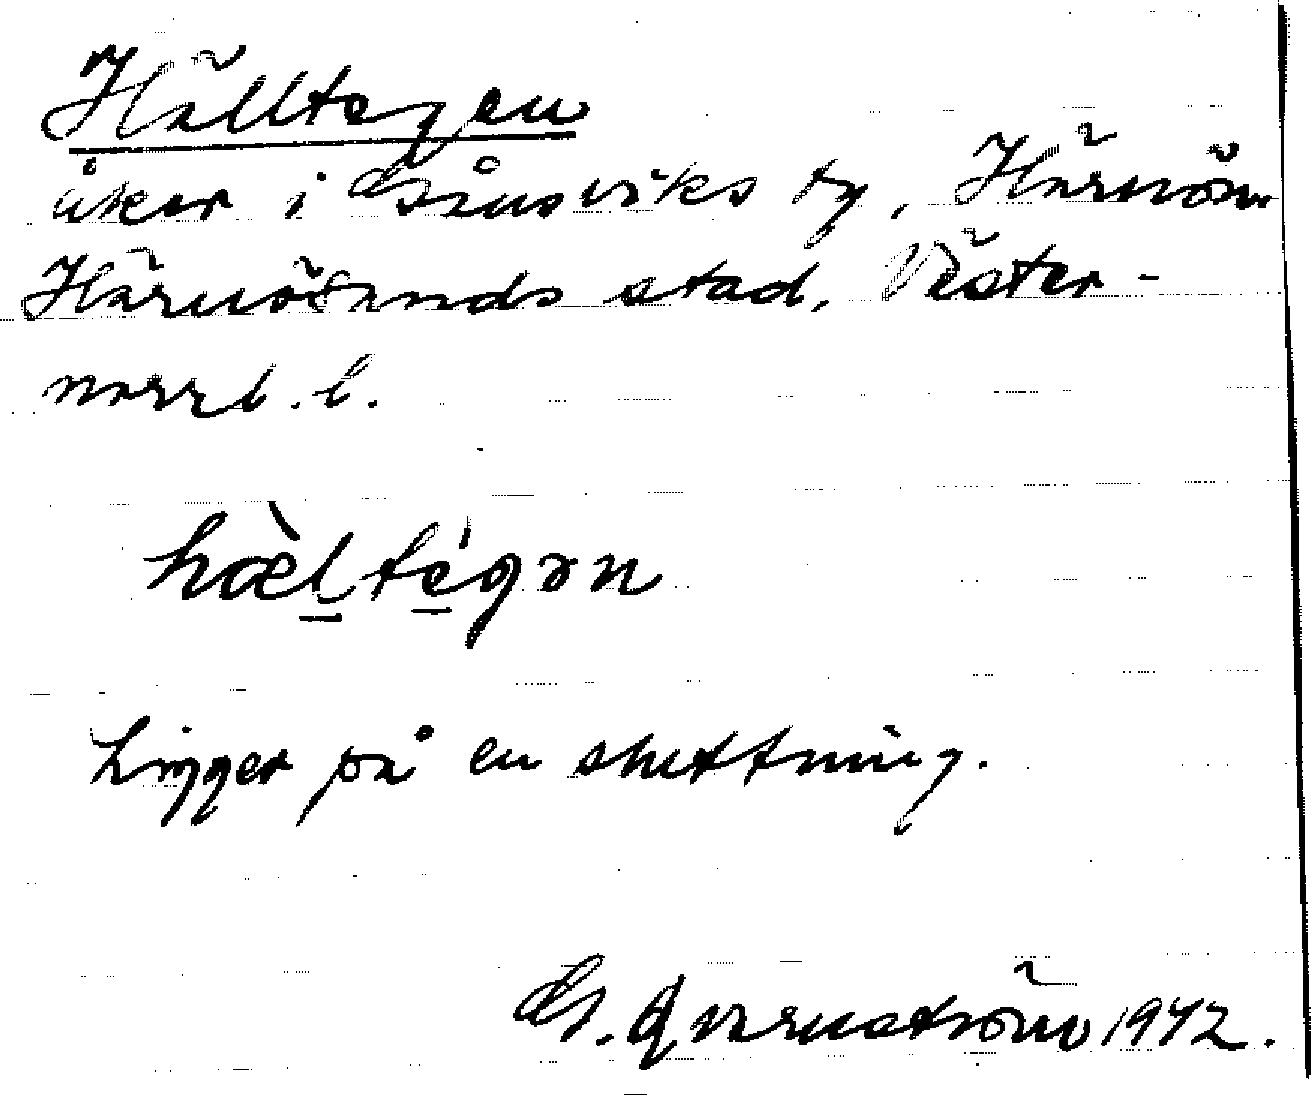 Hälltegen
åker i Gånsviks by, Härnön
Härnösands stad, Väster-
norrl. l.
hæ̀l̠té̠gən
Ligger på en sluttning.
G. Qvarnström 1942.